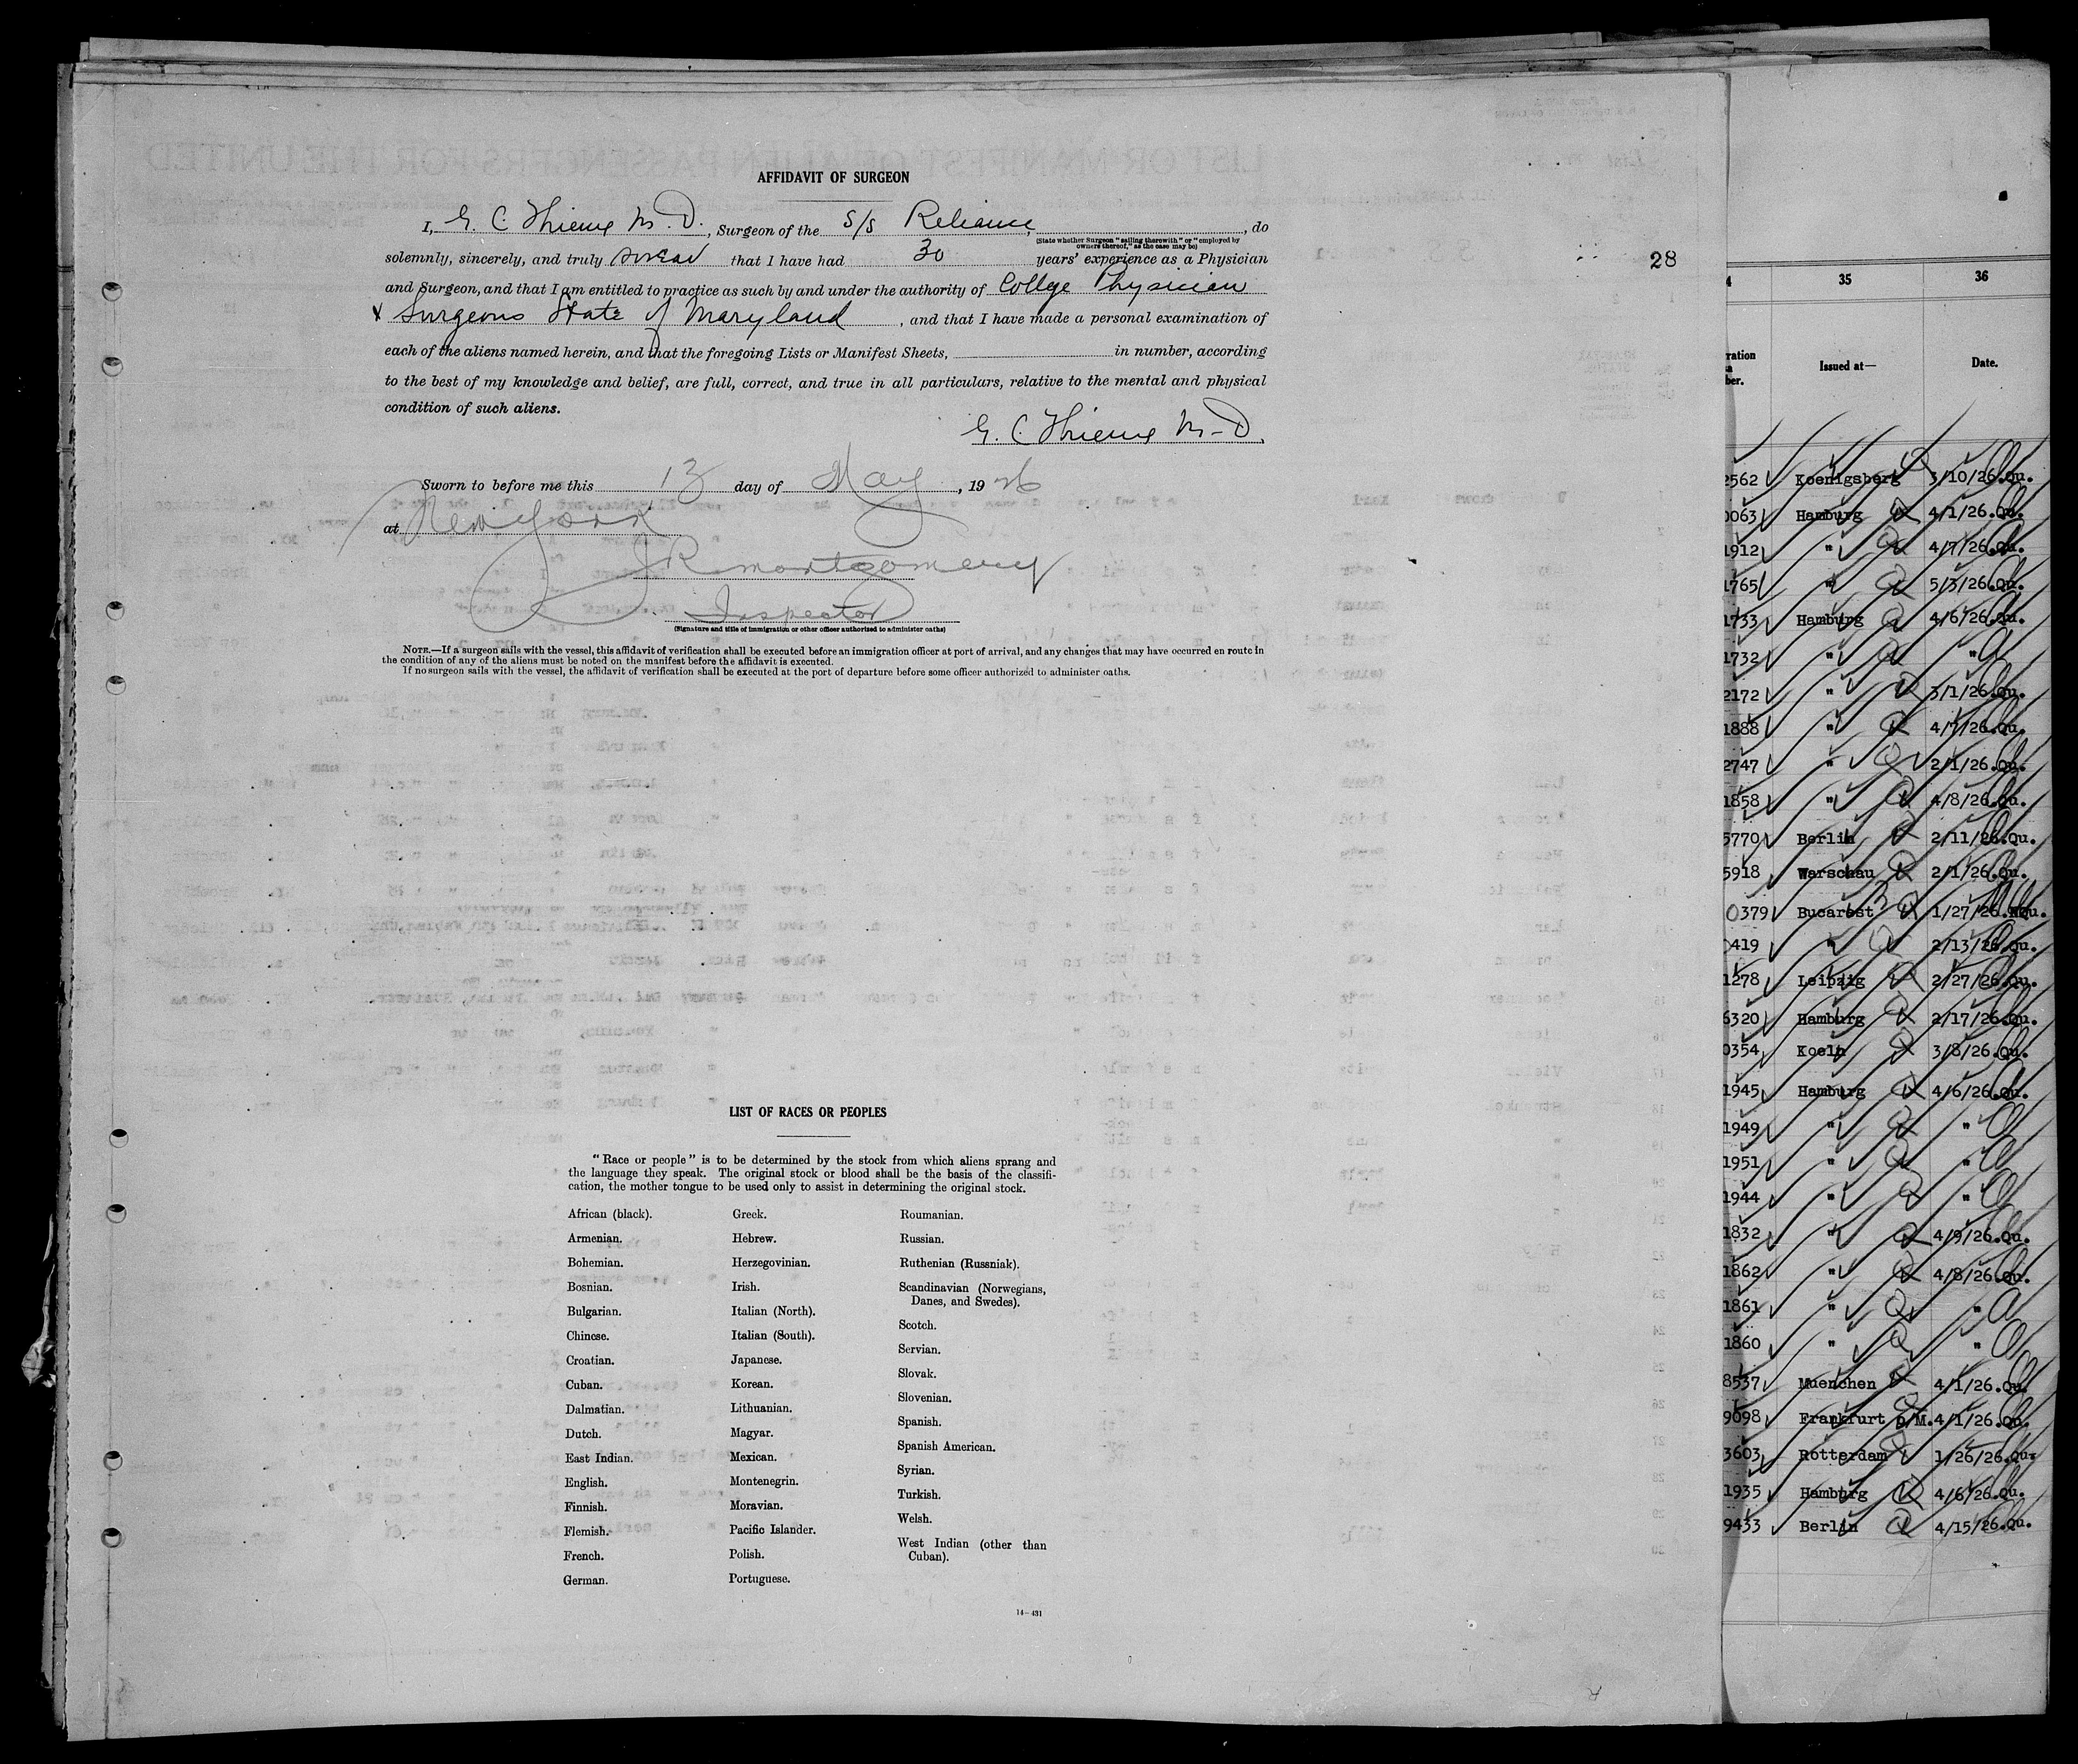 AFFIDAVIT OF SURGEON
I, G. C. Thieme M.D., Surgeon of the S/S Reliance, , do
(State whether Surgeon "sailing therewith" or "employed by
owners thereof," as the case may be)
solemnly, sincerely, and truly swear that I have had 30 years' experience as a Physician
and Surgeon, and that I am entitled to practice as such by and under the authority of College Physician
& Surgeons State of Maryland, and that I have made a personal examination of
each of the aliens named herein, and that the foregoing Lists or Manifest Sheets, in number, according
to the best of my knowledge and belief, are full, correct, and true in all particulars, relative to the mental and physical
condition of such aliens.
G. C. Thieme M-D.
Sworn to before me this 13 day of May, 1926
at New York
J R Montgomery
Inspector
(Signature and title of immigration or other officer authorized to administer oaths)
NOTE.—If a surgeon sails with the vessel, this affidavit of verification shall be executed before an immigration officer at port of arrival, and any changes that may have occurred en route in
the condition of any of the aliens must be noted on the manifest before the affidavit is executed.
If no surgeon sails with the vessel, the affidavit of verification shall be executed at the port of departure before some officer authorized to administer oaths.
LIST OF RACES OR PEOPLES
"Race or people" is to be determined by the stock from which aliens sprang and
the language they speak. The original stock or blood shall be the basis of the classifi-
cation, the mother tongue to be used only to assist in determining the original stock.
African (black).
Armenian.
Bohemian.
Bosnian.
Bulgarian.
Chinese.
Croatian.
Cuban.
Dalmatian.
Dutch.
East Indian.
English.
Finnish.
Flemish.
French.
German.
Greek.
Hebrew.
Herzegovinian.
Irish.
Italian (North).
Italian (South).
Japanese.
Korean.
Lithuanian.
Magyar.
Mexican.
Montenegrin.
Moravian.
Pacific Islander.
Polish.
Portuguese.
Roumanian.
Russian.
Ruthenian (Russniak).
Scandinavian (Norwegians,
Danes, and Swedes).
Scotch.
Servian.
Slovak.
Slovenian.
Spanish.
Spanish American.
Syrian.
Turkish.
Welsh.
West Indian (other than
Cuban).
14—431
28
4 35 36
ration
ber.
Issued at—
Date.
2562 Koenigsberg 3/10/26.Qu.
0063 Hamburg 4/1/26.Qu.
1912 " 4/7/26.Qu.
1765 " 5/3/26.Qu.
1733 Hamburg 4/6/26.Qu.
1732 " "
2172 " 3/1/26.Qu.
1888 " 4/7/26.Qu.
2747 " 2/1/26.Qu.
1858 " 4/8/26.Qu.
5770 Berlin 2/11/26.Qu.
5918 Warschau 2/1/26.Qu.
0379 Bucarest 1/27/26.
0419 " 2/13/26.Qu.
1278 Leipzig 2/27/26.Qu.
6320 Hamburg 2/17/26.Qu.
0354 Koeln 3/8/26.Qu.
1945 Hamburg 4/6/26.Qu.
1949 " "
1951 " "
1944 " "
1832 " 4/9/26.Qu.
1862 " 4/8/26.Qu.
1861 " "
1860 " "
8537 Muenchen 4/1/26.Qu.
9098 Frankfurt o/M. 4/1/26.Qu.
3603 Rotterdam 1/26/26.Qu.
1935 Hamburg 4/6/26.Qu.
9433 Berlin 4/15/26.Qu.